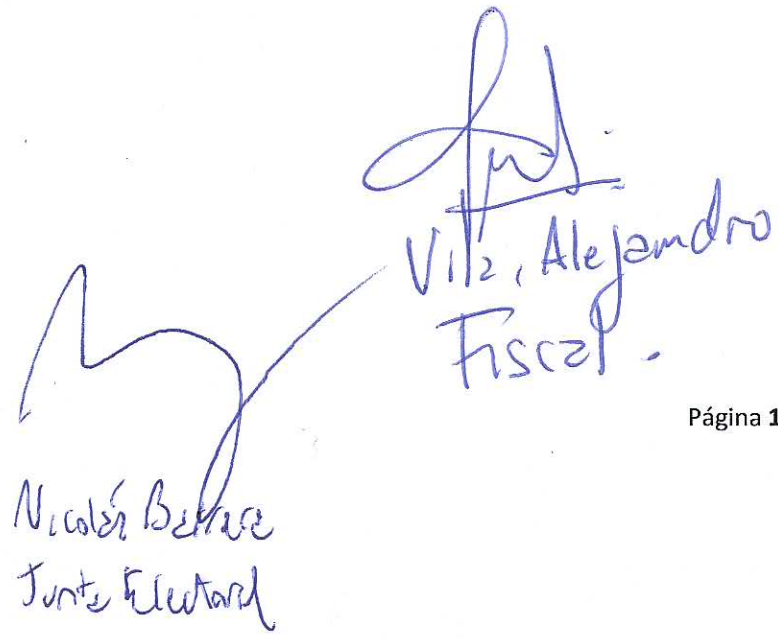 Vila, Alejandro
Fiscal.
Página 1
Nicolás
Junta Electoral